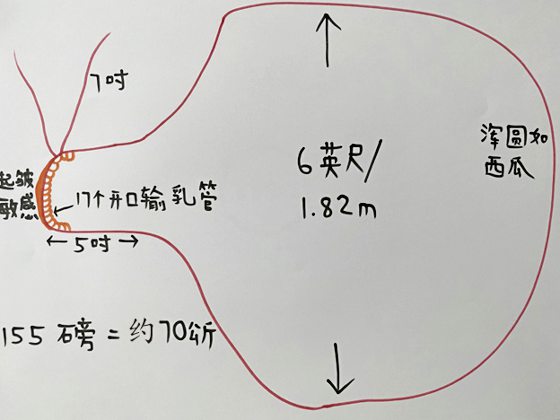 7吋
浑圆如
西瓜
6英尺/
1.82m
起皱
敏感
17个开口输乳管
5吋
155磅=约70公斤